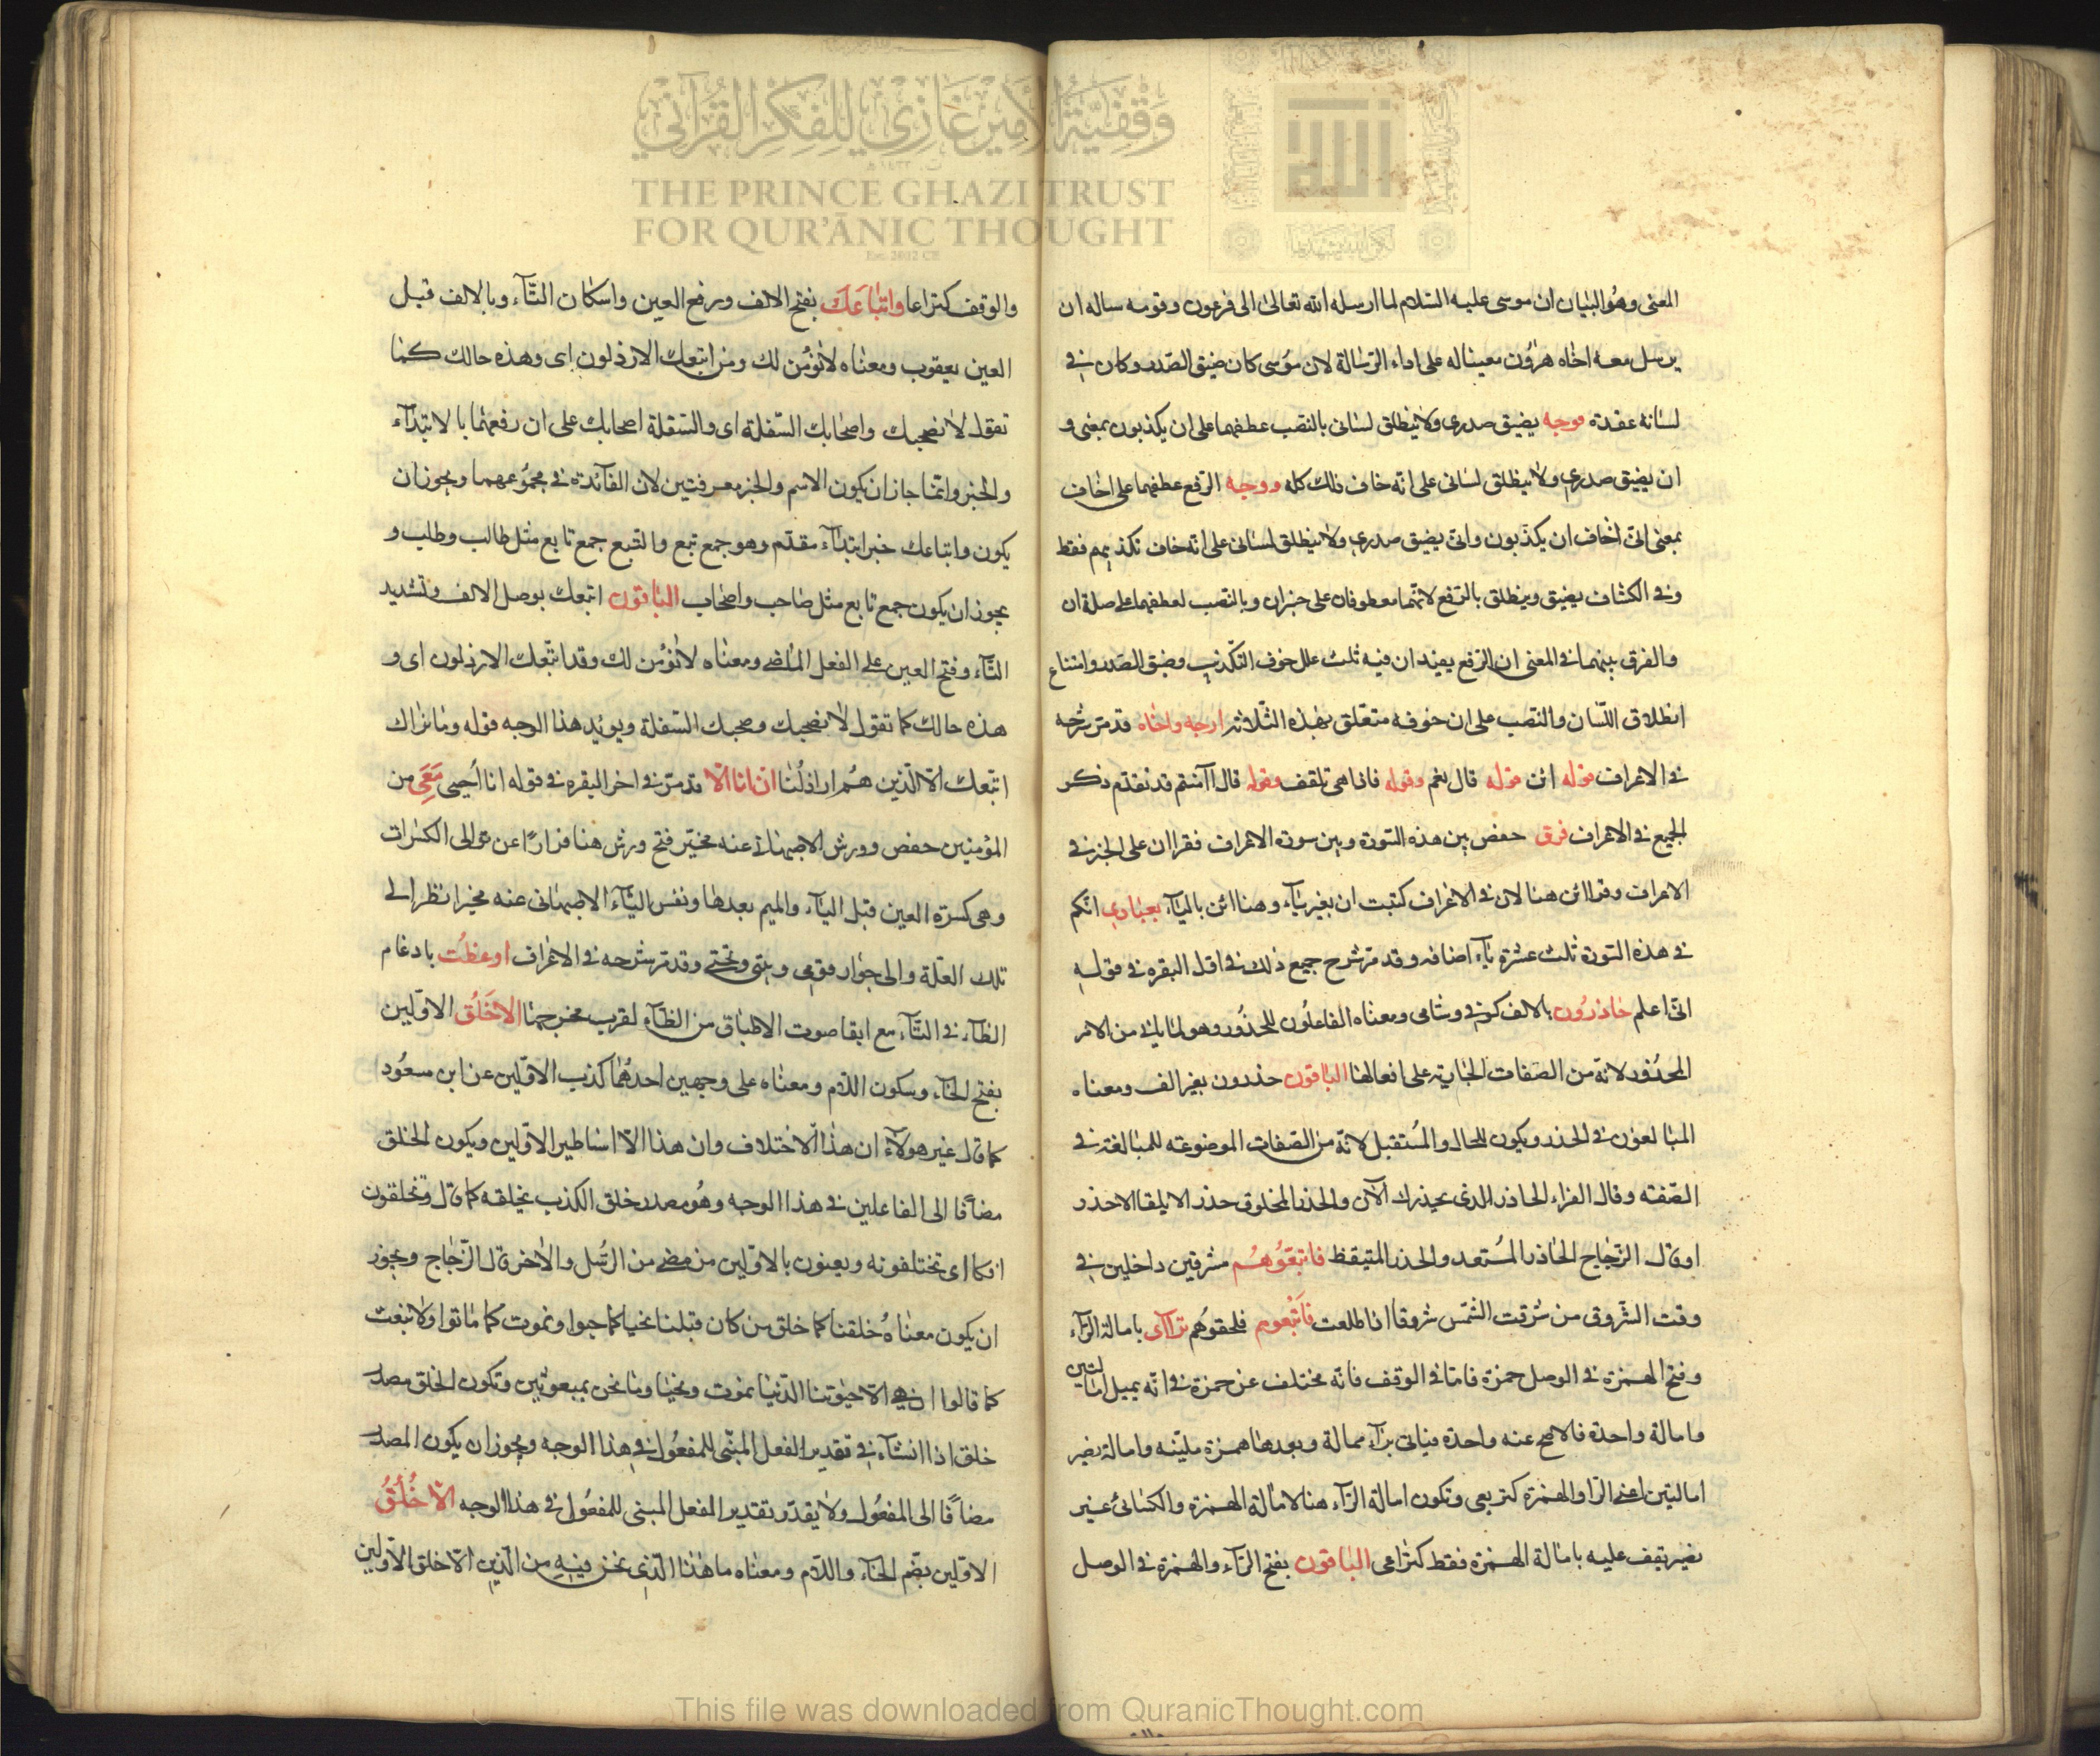 وقفية الأمير غازي للفكر القرآني
THE PRINCE GHAZI TRUST
FOR QUR'ĀNIC THOUGHT
المعنى وهُو البيان ان موسى عليه السّلام لما ارسله الله تعالى الى فرعون وقومه ساله ان
يرسل معه اخاه هرُون معيناله على اداء الرّسالة لان مُوسى كان ضيق الصّدر وكان في
لسانه عقدة فوجه يضيق صدرى ولا ينطلق لسانى بالنصب عطفهما على ان يكذبون بمعنى و
ان يضيق صدري ولا ينطلق لسانى على انه خاف ذلك كله ووجه الرّفع عطفهما على اخاف
بمعنى انى اخاف ان يكذّبون وانى يضيق صدري ولا ينطلق لسانى على انه خاف تكذيبهم فقط
وفي الكشاف يضيق وينطلق بالرّفع لانهما معطوفان على خبران وبالنصب لعطفهما على صلة ان
والفرق بينهما في المعنى ان الرّفع يفيد ان فيه ثلث علل خوف التكّذيب وضيق الصّدر وامتناع
انطلاق اللّسان والنصب على ان خوفه متعّلق بهذه الثّلاثه ارجه واخاه قد مرّ شرحه
في الاعراف قوله ائن قوله قال نعم وقوله فاذا هى تلقف وقوله قال اآمنتم قد تقدّم ذكر
الجميع في الاعراف فرق حفص بين هذه السّورة وبين سورة الاعراف فقرا ان على الخبر في
الاعراف وقرا ائن هنا لان في الاعراف كتبت ان بغير يآء وهنا ائن باليآء بعبادي انكم
في هذه السّورة ثلث عشرة يآء اضافه وقد مرّ شرح جميع ذلك في اوّل البقره في قوله
انى اعلم حاذرُون بالالف كوفى وشامى ومعناه الفاعلُون للحذُور وهو لما ياتى من الامر
المحذُور لانه من الصّفات الجاريه على افعالها الباقون حذرون بغير الف ومعناه
المبالغون في الحذر ويكون للحال والمُستقبل لانّه من الصّفات الموضوعه للمبالغه في
الصّفته وقال الفراء الحاذر الذى يحذرك الآن والحذر المخلوق حذر الا يلقا الا حذر
اوقال الزّجاج الحاذر المُستعد والحذر المتيقظ فاتبعُوهُم مشرقين داخلين في
وقت الشّروق من شرقت الشمس شروقا اذا طلعت فاَتْبعوهم فلحقوهُم ترآاى بامالة الرّآء
وفتح الهمزة في الوصل حمزة فامّا فى الوقف فانّه مختلف عن حمزة فى انّه يميل امالتين
وامالة واحدة فالاصح عنه واحدة فياتى برآء ممالة وبعدها همزة مليّنه وامالة نصير
امالتين اعنى الرّا والهمزة كتربعى وتكون امالة الرّآء هنا لامالة الهمزة والكسائىُ غير
نصير يقف عليه بامالة الهمزة فقط كتراعى الباقون بفتح الرّآء والهمزة في الوصل
والوقف كتراعا واتباعَكَ بفتح الالف ورفع العين واسكان التّآء وبالالف قبل
العين يعقوب ومعناه لانؤمُن لك ومن اتبعك الارذلون اى وهذه حالك كما
تقول لانصحبك واصحابك السّفلة اى والسّفلة اصحابك على ان رفعهما بالابتدآء
والخبر وانما جاز ان يكون الاسم والخبر معرفتين لان الفآئدة في مجمُوعهما ويجوز ان
يكون واتباعك خبر ابتدآء مقدّم وهو جمع تبع والتّبع جمع تابع مثل طالب وطلب و
يجوز ان يكون جمع تابع مثل صاحب واصحاب الباقون اتبعك بوصل الالف وتشديد
التّاء وفتح العين على الفعل الماضى ومعناه لانؤمُن لك وقد اتّبعك الارذلون اى و
هذه حالك كما تقول لانصحبك وصحبك السّفلة ويويد هذا الوجه قوله وما نراك
اتبّعك الّا الّذين هُم اراذلُنا ان انا الّا قد مرّ في اخر البقره في قوله انا اُحيى مَعَى من
المؤمنين حفص وورش الاصبهانى عنه مخيّر فتح ورش هنا فرارًا عن توالى الكسرات
وهى كسرة العين قبل اليآء والميم بعدها ونفس اليآء الاصبهانى عنه مخيرا نظرا الى
تلك العلّة والى جوار قومى وبينى ونجّنى وقد مرّ شرحه فى الاعراف اوعظت بادغام
الظّآء في التّآء مع ابقا صوت الاطباق من الظّآء لقرب مخرجهما الا خَلْق الاوّلين
بفتح الخآء وسكون اللّام ومعناه على وجهين احدهُما كذب الاوّلين عن ابن مسعُود
كما قال غير هولآء ان هذا الّا اختلاف وان هذا الّا اساطير الاوّلين ويكون الخلق
مضافًا الى الفاعلين فى هذا الوجه وهُو مصدر خلق الكذب يخلقه كما قال وتخلقون
افكا اى تختلقونه ويعنون بالاوّلين من مضى من الرّسُل والاخر قال الزّجاج ويجوز
ان يكون معناهُ خلقنا كما خلق من كان قبلنا نحيا كما حيوا ونموت كما ماتوا ولا نبعث
كما قالوا ان هى الّا حيوتنا الدّنيا نموت ونحيا وما نحن بمبعوثين وتكون الخلق مصدر
خلق اذا انشآء في تقدير الفعل المبنّى للمفعُول فى هذا الوجه ويجوز ان يكون المصدر
مضافًا الى المفعُول ولا يقدّر تقدير الفعل المبنى للمفعُول فى هذا الوجه الّا خُلُقُ
الاوّلين بضّم الخآء واللّام ومعناه ما هذا الّذى نحن فيه من الّدين الّا خلق الاوّلين
This file was downloaded from QuranicThought.com